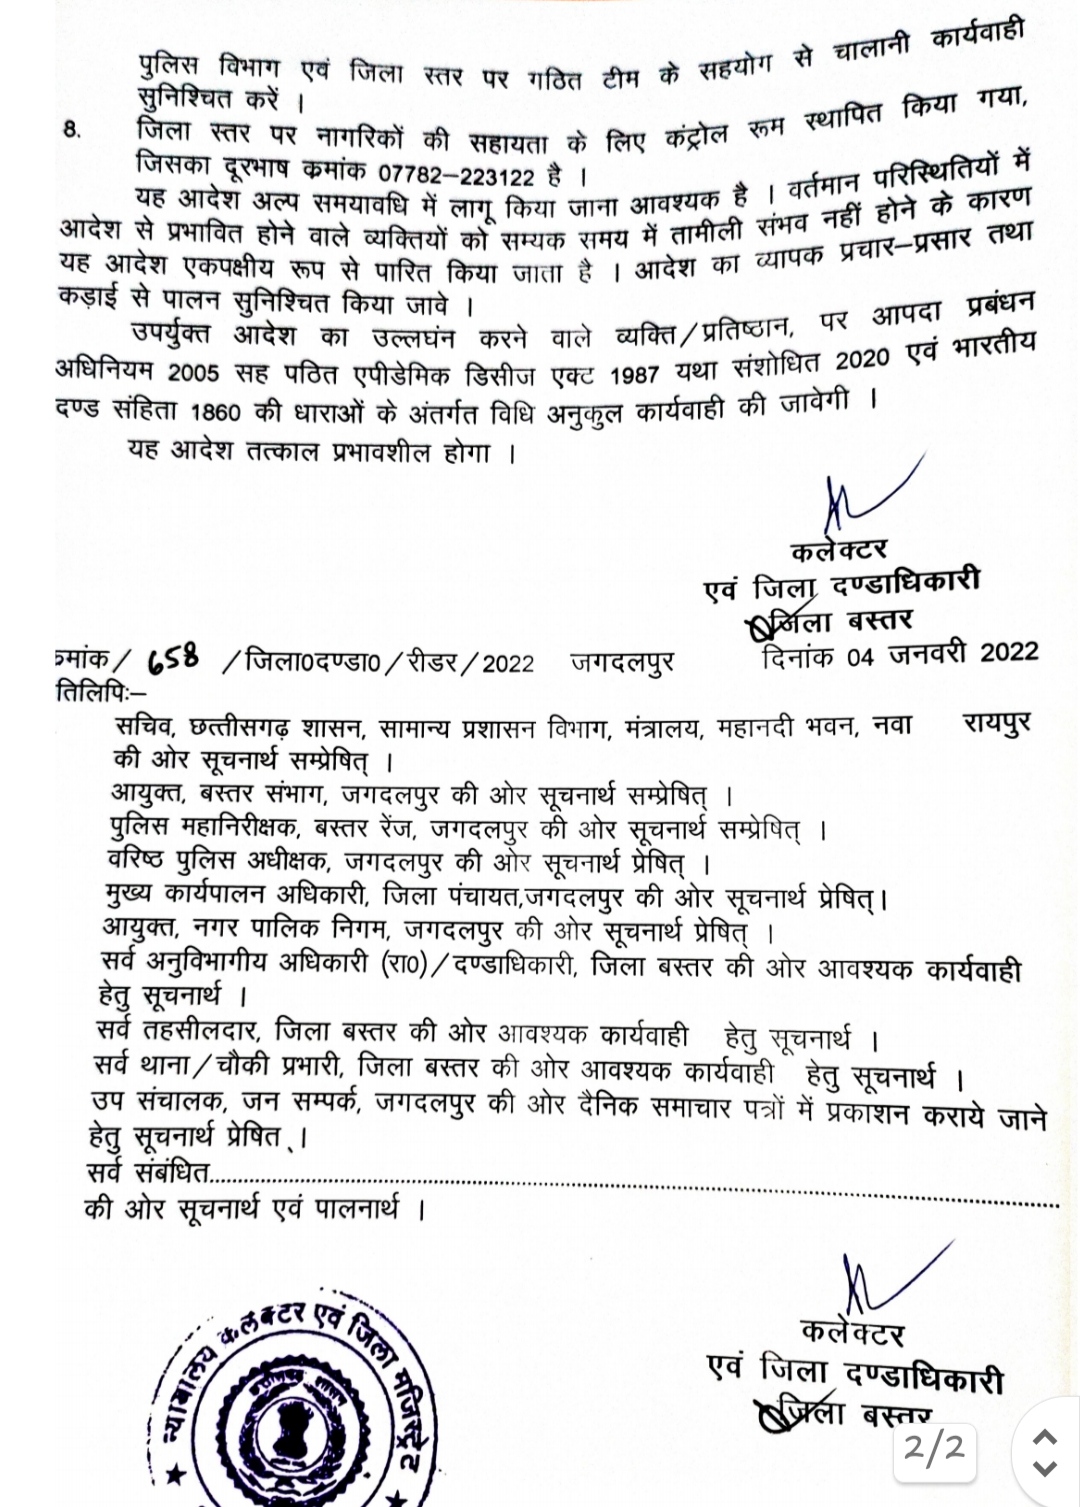 पुलिस विभाग एवं जिला स्तर पर गठित टीम के सहयोग से चालानी कार्यवाही
सुनिश्चित करें ।
8. जिला स्तर पर नागरिकों की सहायता के लिए कंट्रोल रूम स्थापित किया गया,
जिसका दूरभाष क्रमांक 07782–223122 है ।
यह आदेश अल्प समयावधि में लागू किया जाना आवश्यक है । वर्तमान परिस्थितियों में
आदेश से प्रभावित होने वाले व्यक्तियों को सम्यक समय में तामीली संभव नहीं होने के कारण
यह आदेश एकपक्षीय रूप से पारित किया जाता है । आदेश का व्यापक प्रचार–प्रसार तथा
कड़ाई से पालन सुनिश्चित किया जावे ।
उपर्युक्त आदेश का उल्लघंन करने वाले व्यक्ति/प्रतिष्ठान, पर आपदा प्रबंधन
अधिनियम 2005 सह पठित एपीडेमिक डिसीज एक्ट 1987 यथा संशोधित 2020 एवं भारतीय
दण्ड संहिता 1860 की धाराओं के अंतर्गत विधि अनुकुल कार्यवाही की जावेगी ।
यह आदेश तत्काल प्रभावशील होगा ।
कलेक्टर
एवं जिला दण्डाधिकारी
जिला बस्तर
क्रमांक/ 658 /जिला0दण्डा0/रीडर/2022 जगदलपुर दिनांक 04 जनवरी 2022
तिलिपिः–
सचिव, छत्तीसगढ़ शासन, सामान्य प्रशासन विभाग, मंत्रालय, महानदी भवन, नवा रायपुर
की ओर सूचनार्थ सम्प्रेषित् ।
आयुक्त, बस्तर संभाग, जगदलपुर की ओर सूचनार्थ सम्प्रेषित् ।
पुलिस महानिरीक्षक, बस्तर रेंज, जगदलपुर की ओर सूचनार्थ सम्प्रेषित् ।
वरिष्ठ पुलिस अधीक्षक, जगदलपुर की ओर सूचनार्थ प्रेषित् ।
मुख्य कार्यपालन अधिकारी, जिला पंचायत,जगदलपुर की ओर सूचनार्थ प्रेषित्।
आयुक्त, नगर पालिक निगम, जगदलपुर की ओर सूचनार्थ प्रेषित् ।
सर्व अनुविभागीय अधिकारी (रा0)/दण्डाधिकारी, जिला बस्तर की ओर आवश्यक कार्यवाही
हेतु सूचनार्थ ।
सर्व तहसीलदार, जिला बस्तर की ओर आवश्यक कार्यवाही हेतु सूचनार्थ ।
सर्व थाना/चौकी प्रभारी, जिला बस्तर की ओर आवश्यक कार्यवाही हेतु सूचनार्थ ।
उप संचालक, जन सम्पर्क, जगदलपुर की ओर दैनिक समाचार पत्रों में प्रकाशन कराये जाने
हेतु सूचनार्थ प्रेषित् ।
सर्व संबंधित....................................................................
की ओर सूचनार्थ एवं पालनार्थ ।
कलेक्टर
एवं जिला दण्डाधिकारी
जिला बस्तर
न्यायालय कलेक्टर एवं जिला मजिस्ट्रेट
छत्तीसगढ़ शासन
2/2